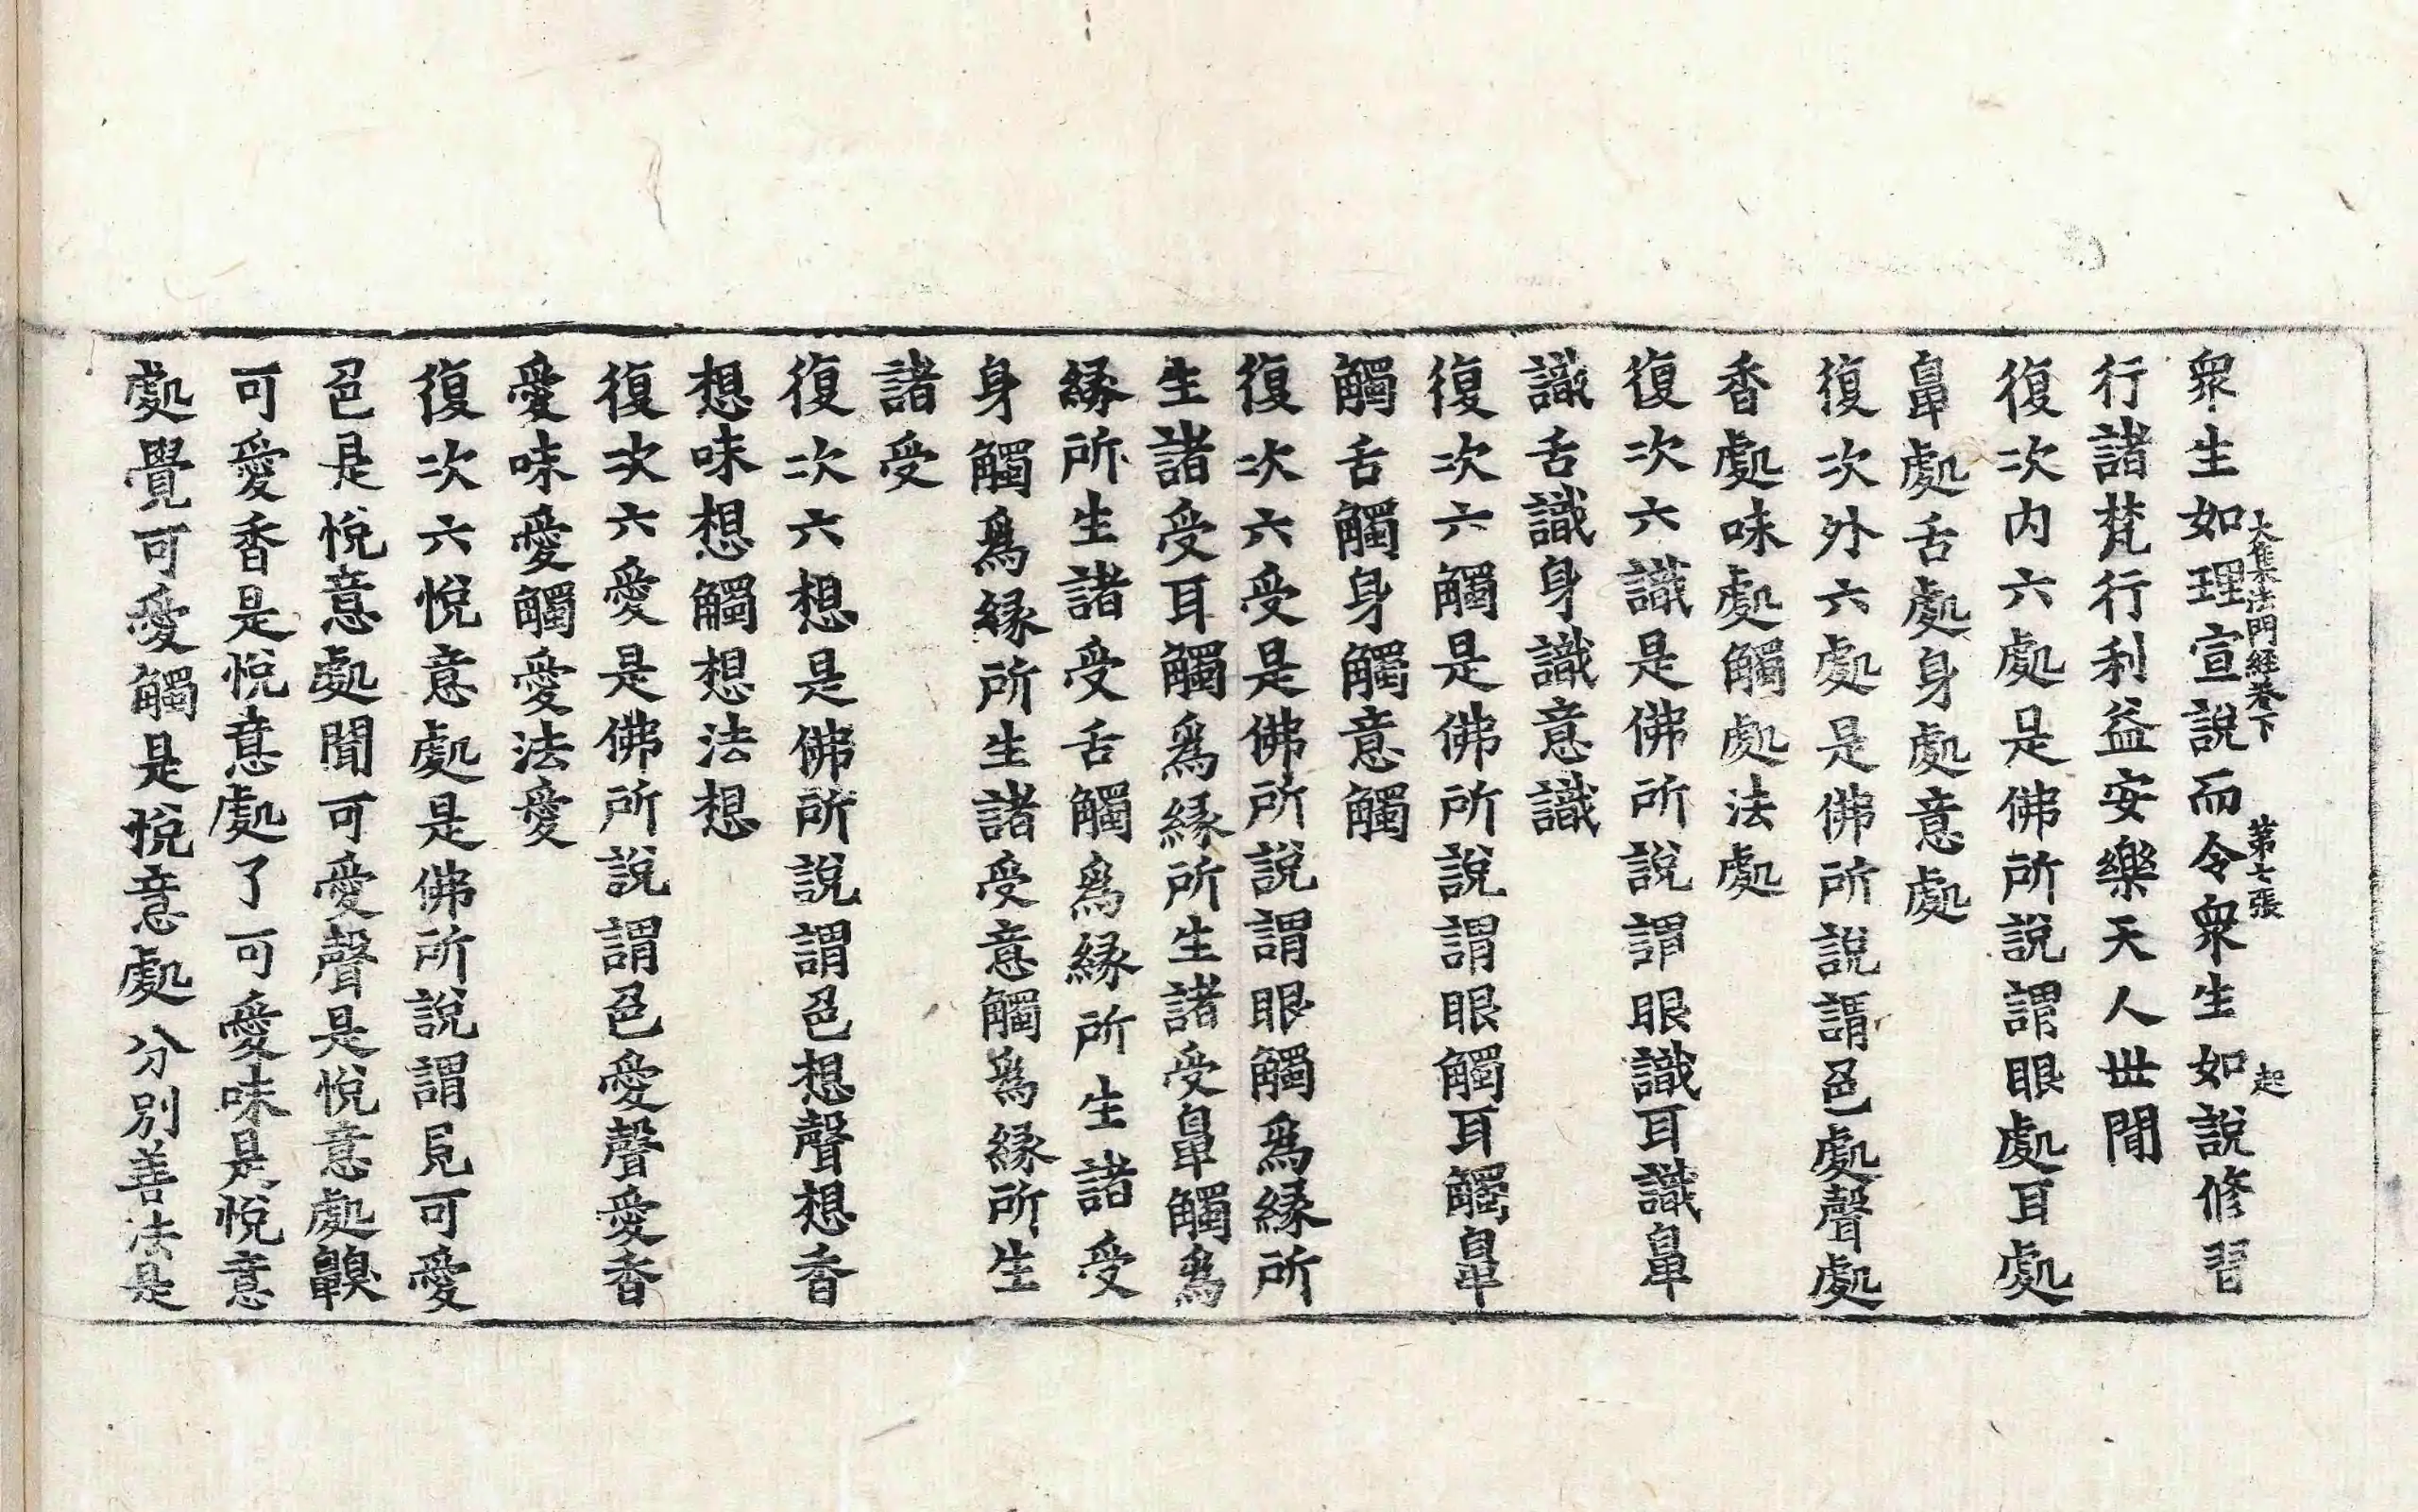 衆生如理宣說而令衆生如說修習
大集法門經卷下 第七張 起
行諸梵行利益安樂天人世間
復次內六處是佛所說謂眼處耳處
鼻處舌處身處意處
復次外六處是佛所說謂色處聲處
香處味處觸處法處
復次六識是佛所說謂眼識耳識鼻
識舌識身識意識
復次六觸是佛所說謂眼觸耳觸鼻
觸舌觸身觸意觸
復次六受是佛所說謂眼觸爲緣所
生諸受耳觸爲緣所生諸受鼻觸爲
緣所生諸受舌觸爲緣所生諸受
身觸爲緣所生諸受意觸爲緣所生
諸受
復次六想是佛所說謂色想聲想香
想味想觸想法想
復次六愛是佛所說謂色愛聲愛香
愛味愛觸愛法愛
復次六悅意處是佛所說謂見可愛
色是悅意處聞可愛聲是悅意處齅
可愛香是悅意處了可愛味是悅意
處覺可愛觸是悅意處分別善法是